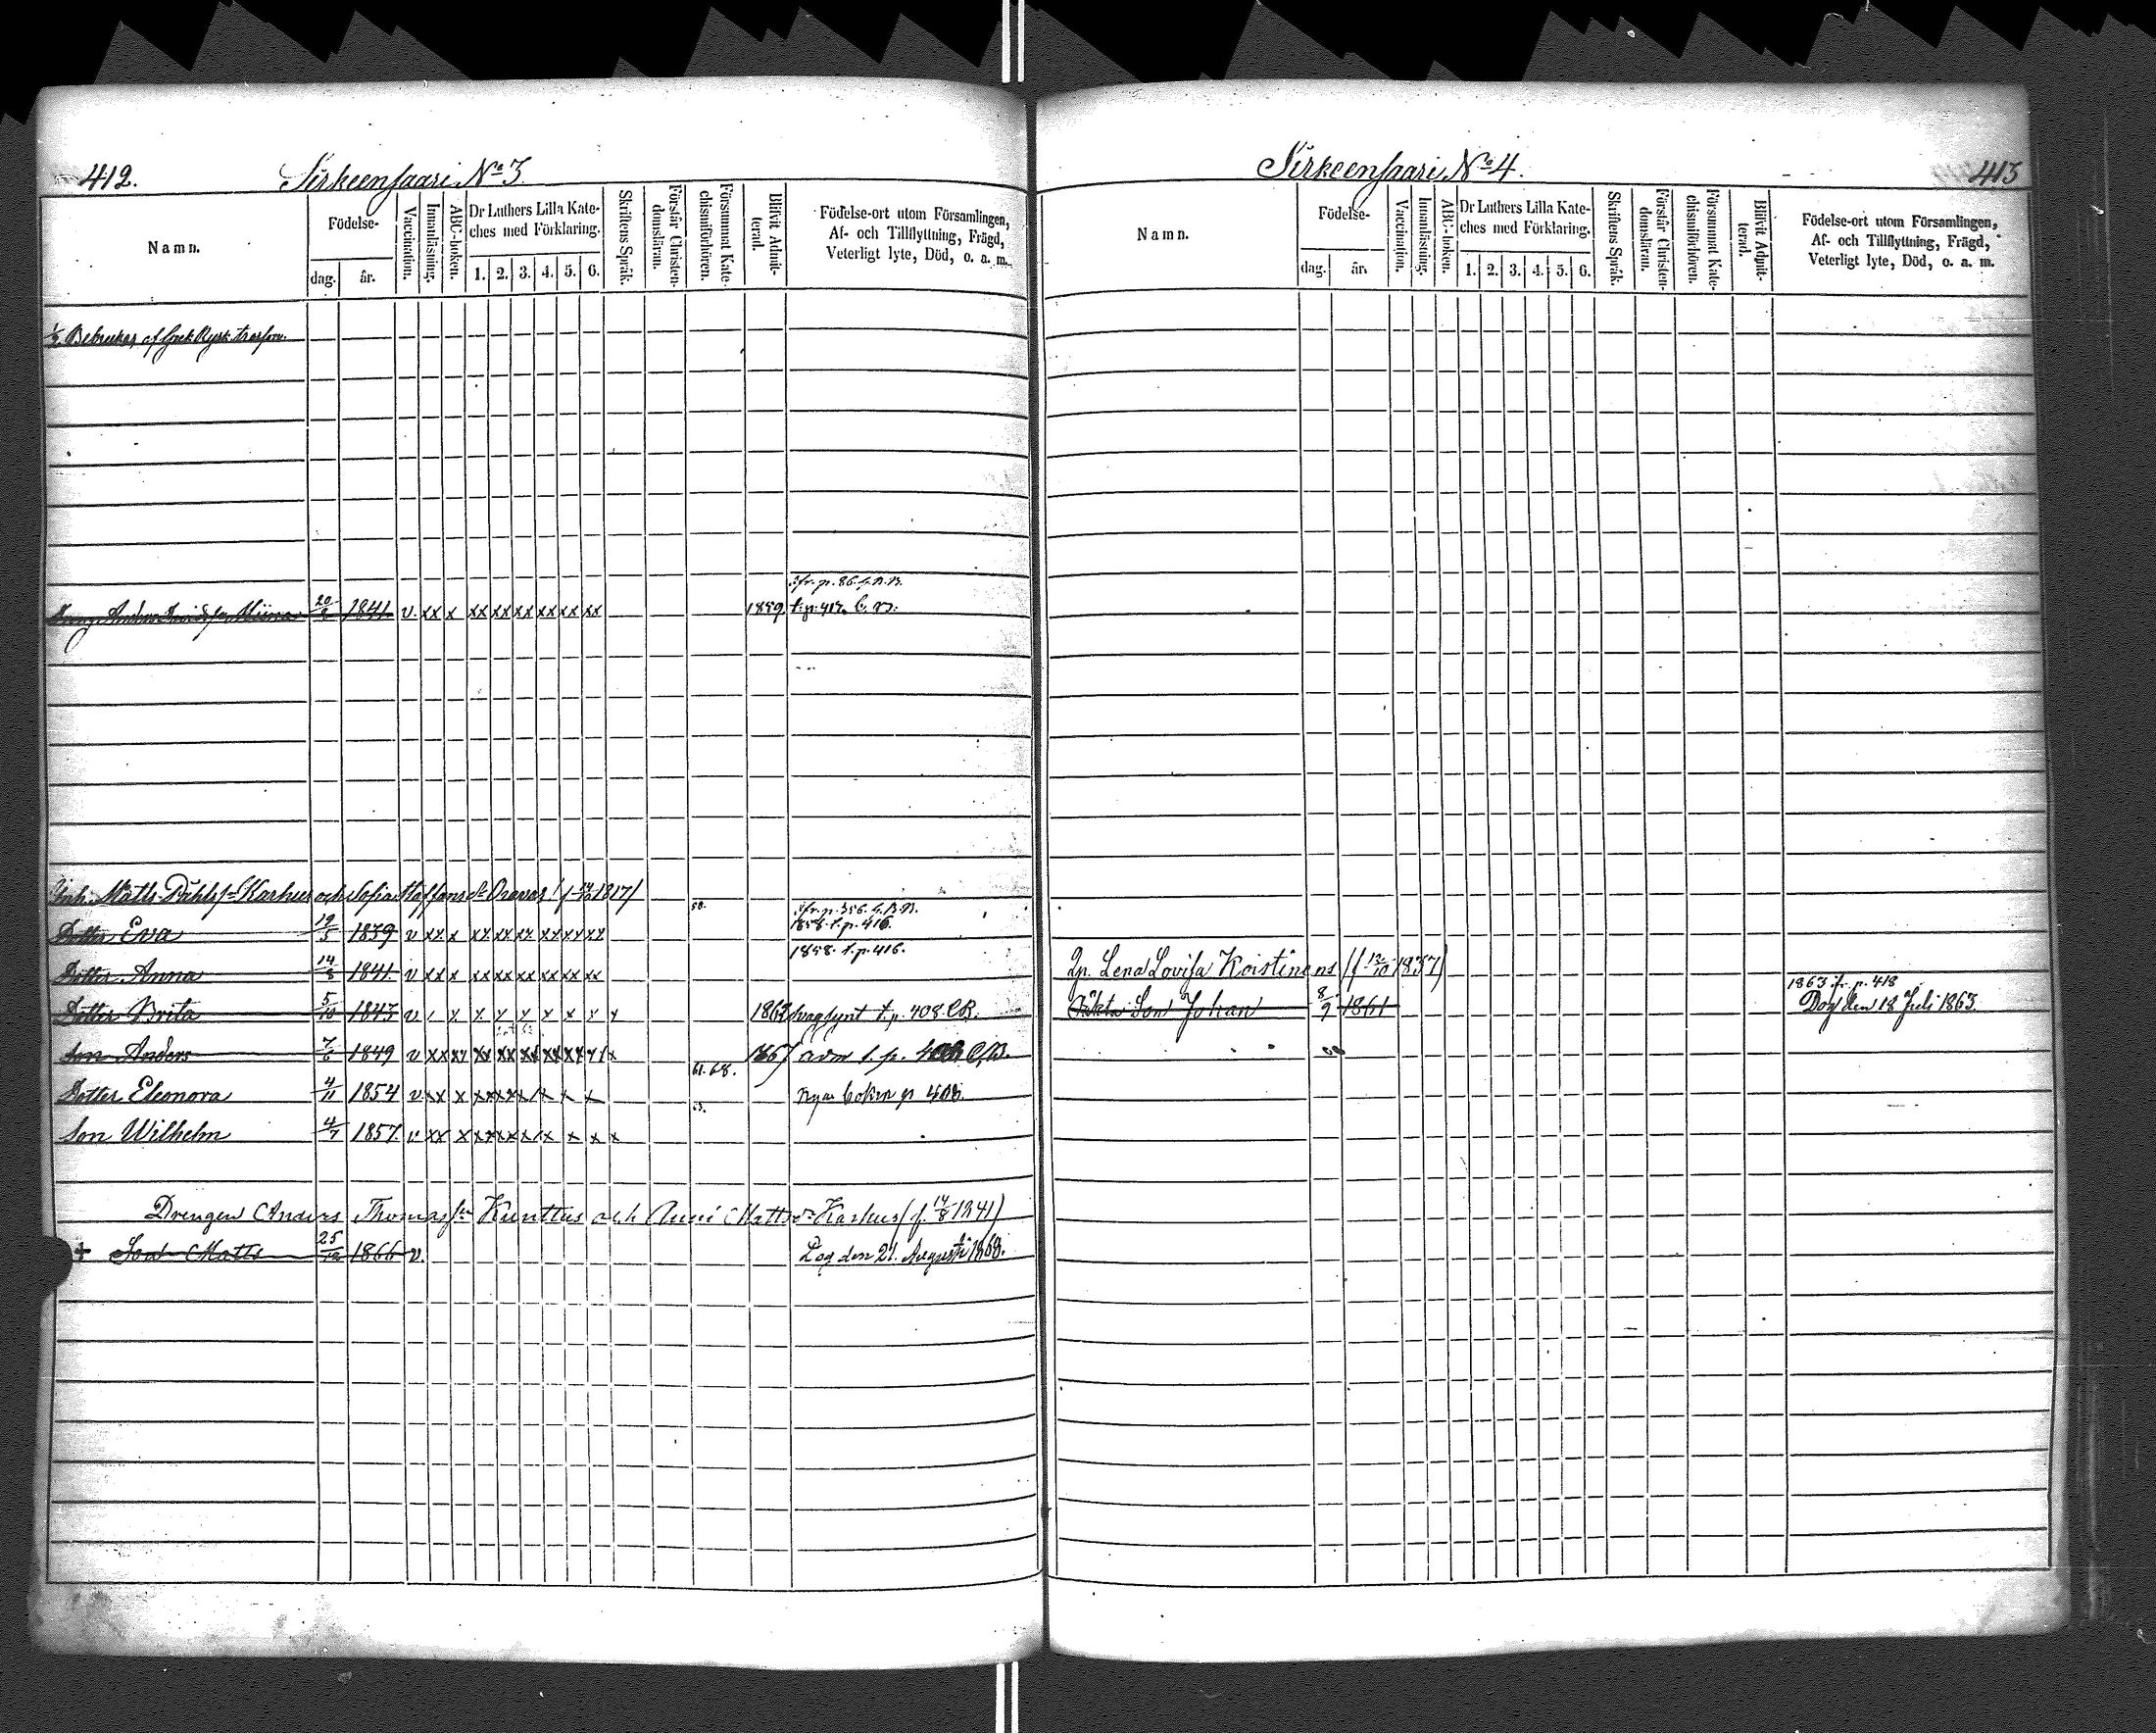 412. Sirkeensaari No 3.
Namn. Födelse- dag. år. Vaccination. Innanläsning. ABC-boken. Dr Luthers Lilla Kateches med Förklaring. 1. 2. 3. 4. 5. 6. Skriftens Språk. Förstår Christendomsläran. Försummat Katechismiförhören. Blifvit Admitterad. Födelse-ort utom Församlingen, Af- och Tillflyttning, Frägd, Veterligt lyte, Död, o. a. m.
1/2 Brukes af Grek Rysk
fr. p. 86.
Dreng Anders 20/6 1841. v. xx x xx xx xx xx xx xx 1859 t. p. 417.
Inh. Matts Påhlss. Karhus och Sofia Staffansdr 1817)
50. fr. p. 356.
Dotter Eva 19/5 1839 v xx x xx xx xx xx xx xx 1858. t. p. 416.
1858. t. p. 416.
Dotter Anna 14/8 1841. v xx x xx xx xx xx xx xx
Dotter Brita 5/10 1843 v x x x x x x x x svagsynt t. p. 408 CB.
Son Anders 7/6 1849 v xx xx xx xx xx xx xx x 1867 adm t. p.
61. 68.
Dotter Eleonora 4/11 1854 v xx x xx xx x x x x nya boken p 408.
Son Wilhelm 4/7 1857. v. xx x xx xx x x x x x
Drengen Anders Thomass. Kunttus och Anni Mattsdr Karhus (f. 14/8 1841)
+ Son Matts 25/12 1866 v. Dog den 21. Augusti 1868.
Sirkeensaari No 4. 413
Namn. Födelse- dag. år. Vaccination. Innanläsning. ABC-boken. Dr Luthers Lilla Kateches med Förklaring. 1. 2. 3. 4. 5. 6. Skriftens Språk. Förstår Christendomsläran. Försummat Katechismiförhören. Blifvit Admitterad. Födelse-ort utom Församlingen, Af- och Tillflyttning, Frägd, Veterligt lyte, Död, o. a. m.
Lena Lovisa Koistinens (f 12/10 1837)
1863 fr. p. 418
Oäkta Son Johan 8/9 1861 Dog den 18 Juli 1863.